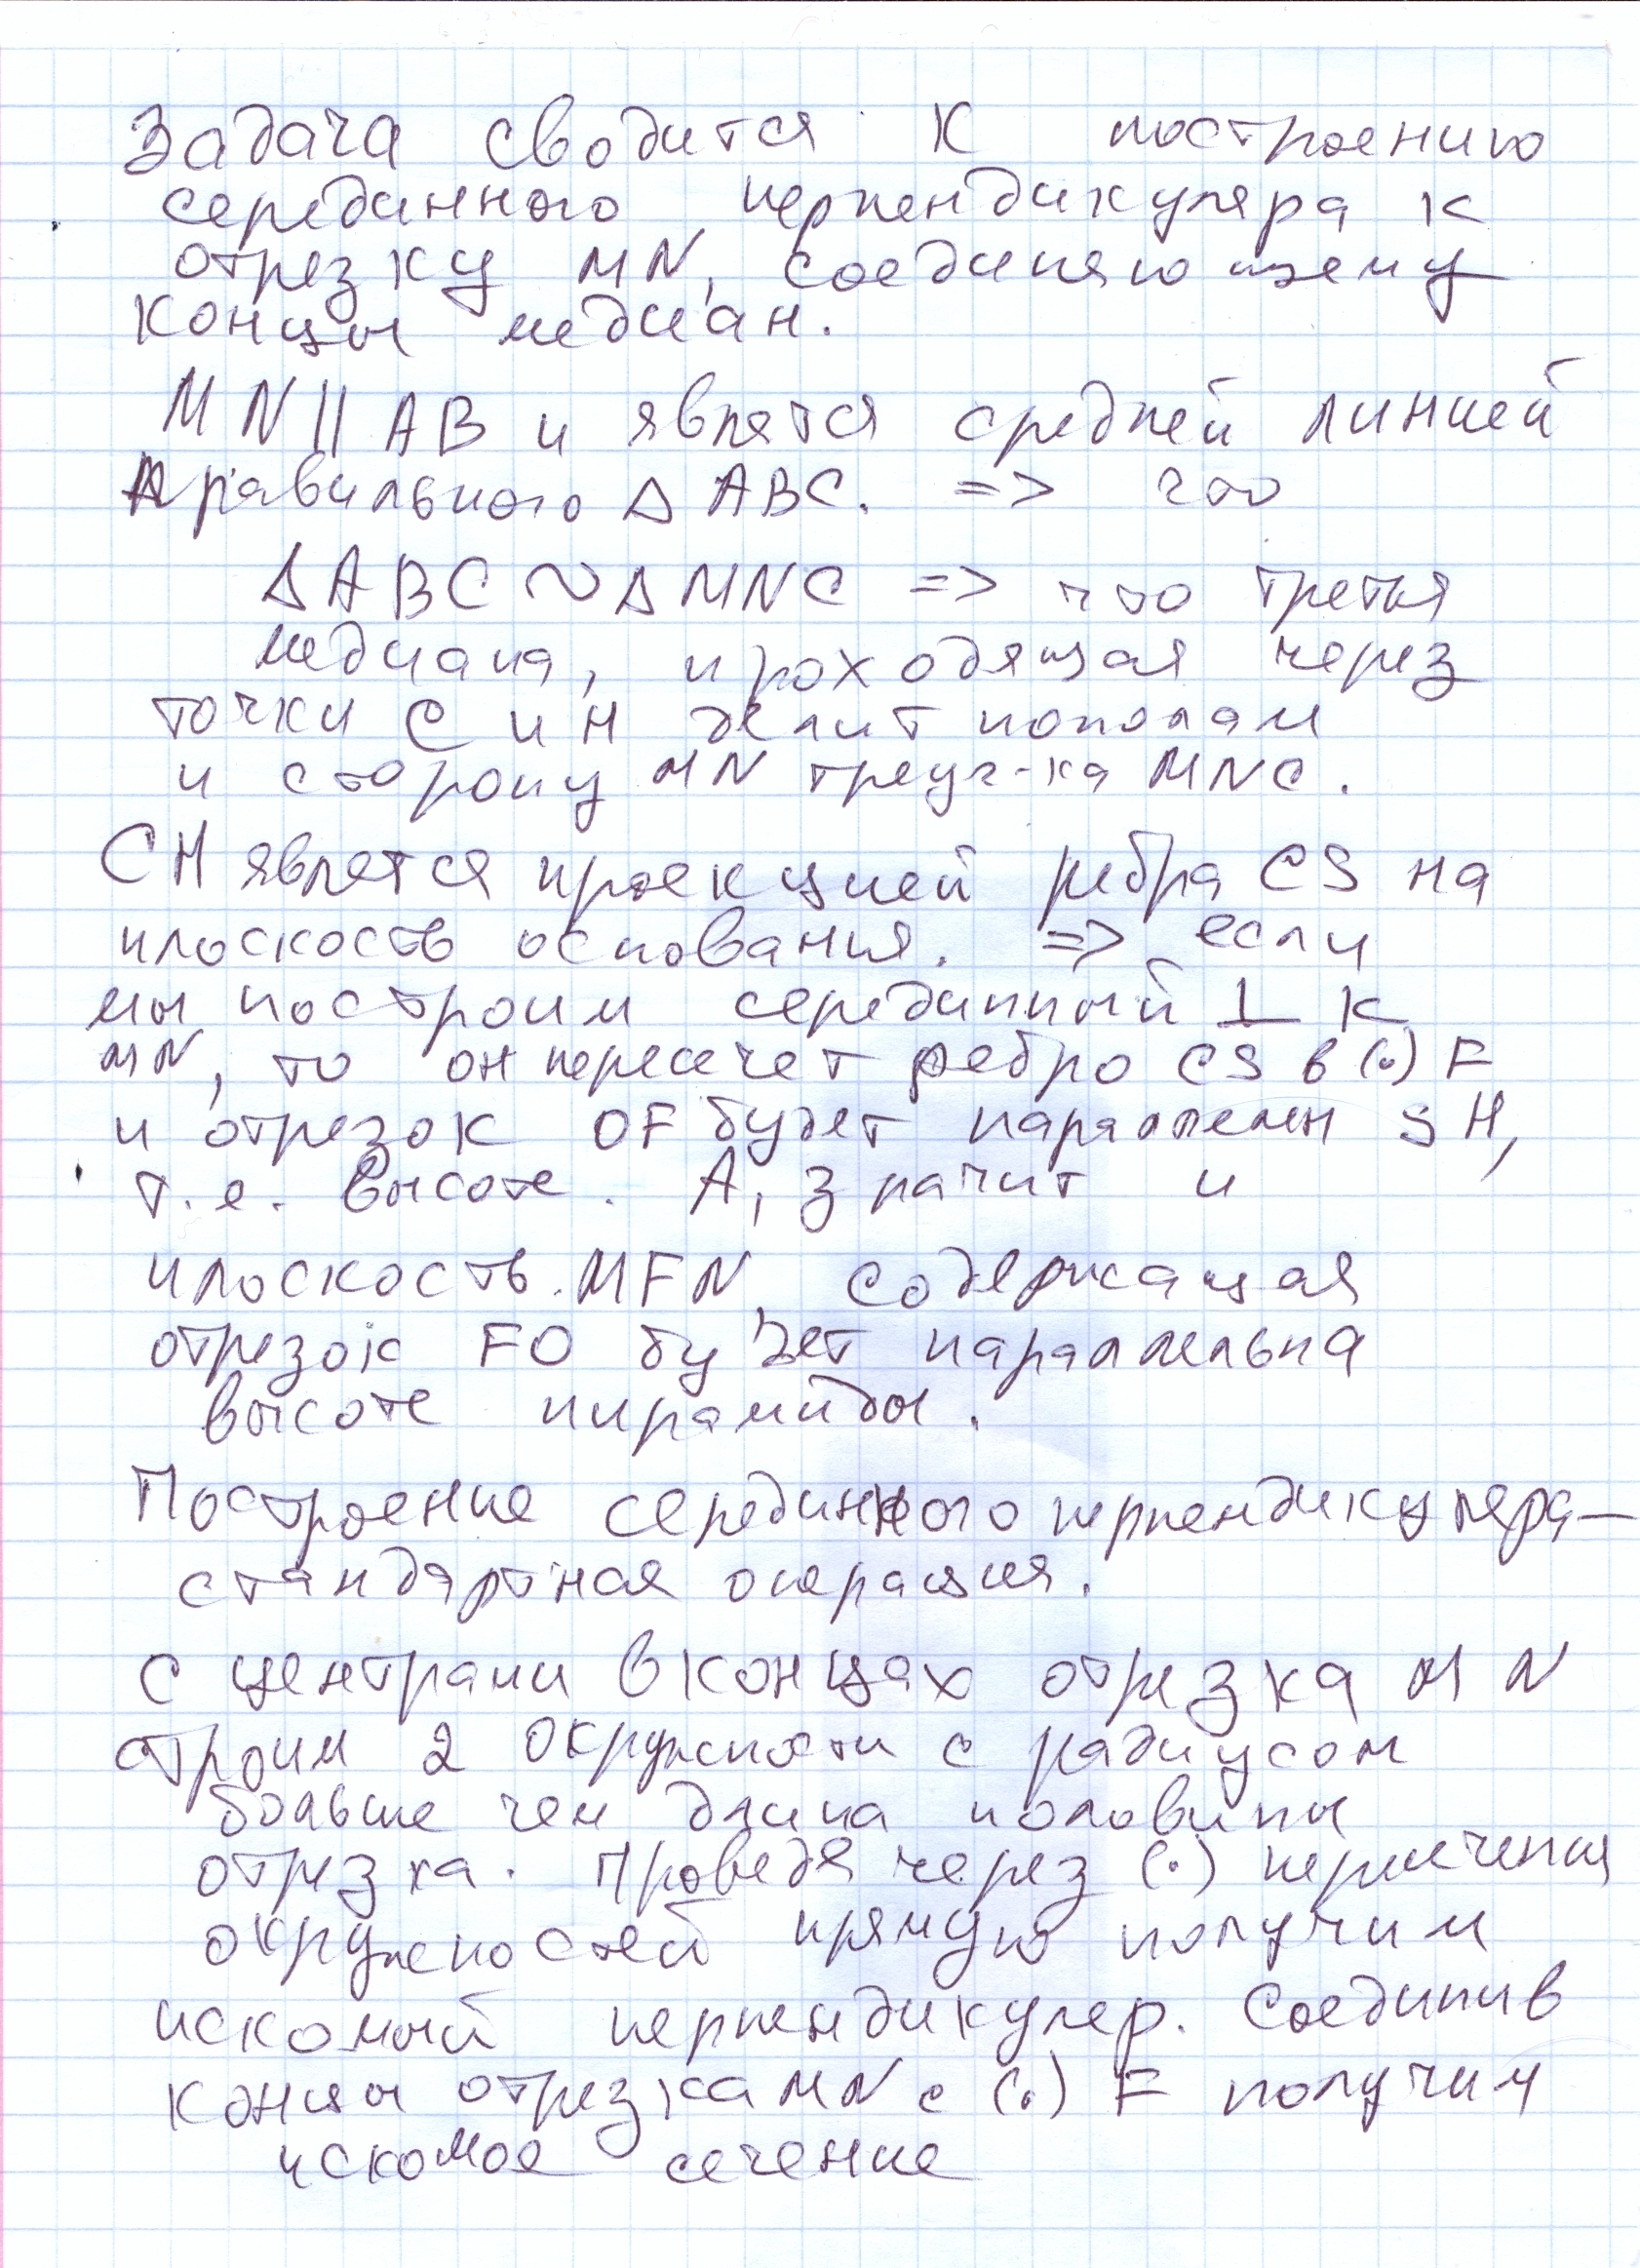 Задача сводится к построению
серединного перпендикуляра к
отрезку MN, соединяющему
концы медиан.
MN || AB и явлется средней линией
правильного Δ ABC. => что
Δ ABC ~ Δ MNC => что третья
медиана, проходящая через
точки C и H делит пополам
и сторону MN треуг-ка MNC.
CH явлется проекцией ребра CS на
плоскость основания. => если
мы построим серединный ⊥ к
MN, то он пересечет ребро CS в (.) F
и отрезок OF будет параллелен SH,
т.е. высоте. А, значит и
плоскость MFN, содержащая
отрезок FO будет параллельна
высоте пирамиды.
Построение серединного перпендикуляра –
стандартная операция.
С центрами в концах отрезка MN
строим 2 окружности с радиусом
больше чем длина половины
отрезка. Проведя через (.) пересечения
окружностей прямую получим
искомый перпендикуляр. Соединив
концы отрезка MN с (.) F получим
искомое сечение